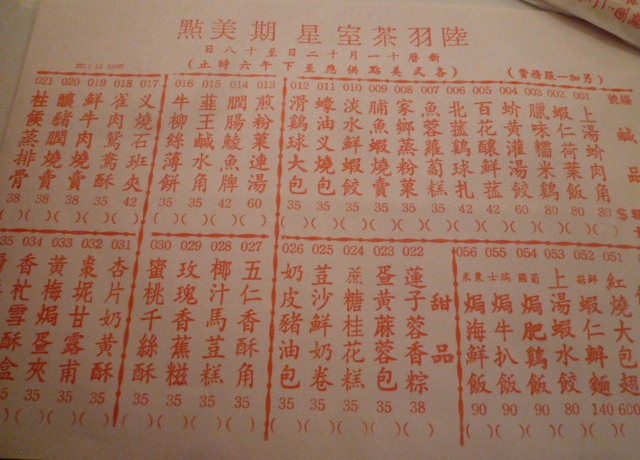 陸羽茶室 星期美點
新曆十一月十二日至十八日
(各式美點供應至下午六時止)
(另加一服務費)
編號 鹹品
001 上湯蚧肉角 80
002 蝦仁荷葉飯 80
003 臘味糯米鷄 80
004 蚧黃灌湯餃 60
005 百花釀鮮菰 42
006 北菰鷄球扎 42
007 魚蓉蘿蔔糕 35
008 家鄉蒸粉菓 35
009 脯魚蝦燒賣 35
010 淡水鮮蝦餃 35
011 蠔油义燒包 35
012 滑鷄球大包 35
013 煎粉菓連湯 60
014 膶腸鯪魚牌 42
015 韮王鹹水角 38
016 牛柳絲薄餅 38
017 义燒石班夾 42
018 雀肉鴛鴦酥 35
019 鮮牛肉燒賣 38
020 釀豬膶燒賣 38
021 桂候蒸排骨 38
051 紅燒大包翅 600
052 鮮菇蝦仁辦麵 140
053 上湯蝦水餃 80
054 葡國焗肥鷄飯 90
055 瑞士焗牛扒飯 90
056 粟米焗海鮮飯 90
甜品
022 蓮子蓉香粽 38
023 蛋黃蔴蓉包 35
024 蔗糖桂花糕 35
025 荳沙鮮奶卷 35
026 奶皮豬油包 35
027 五仁香酥角 35
028 椰汁馬荳糕 35
029 玫瑰香蕉糍 35
030 蜜桃千絲酥 35
031 杏片奶黃酥 35
032 棗坭甘露甫 35
033 黃梅焗蛋夾 35
034 香杧雪酥盒 35